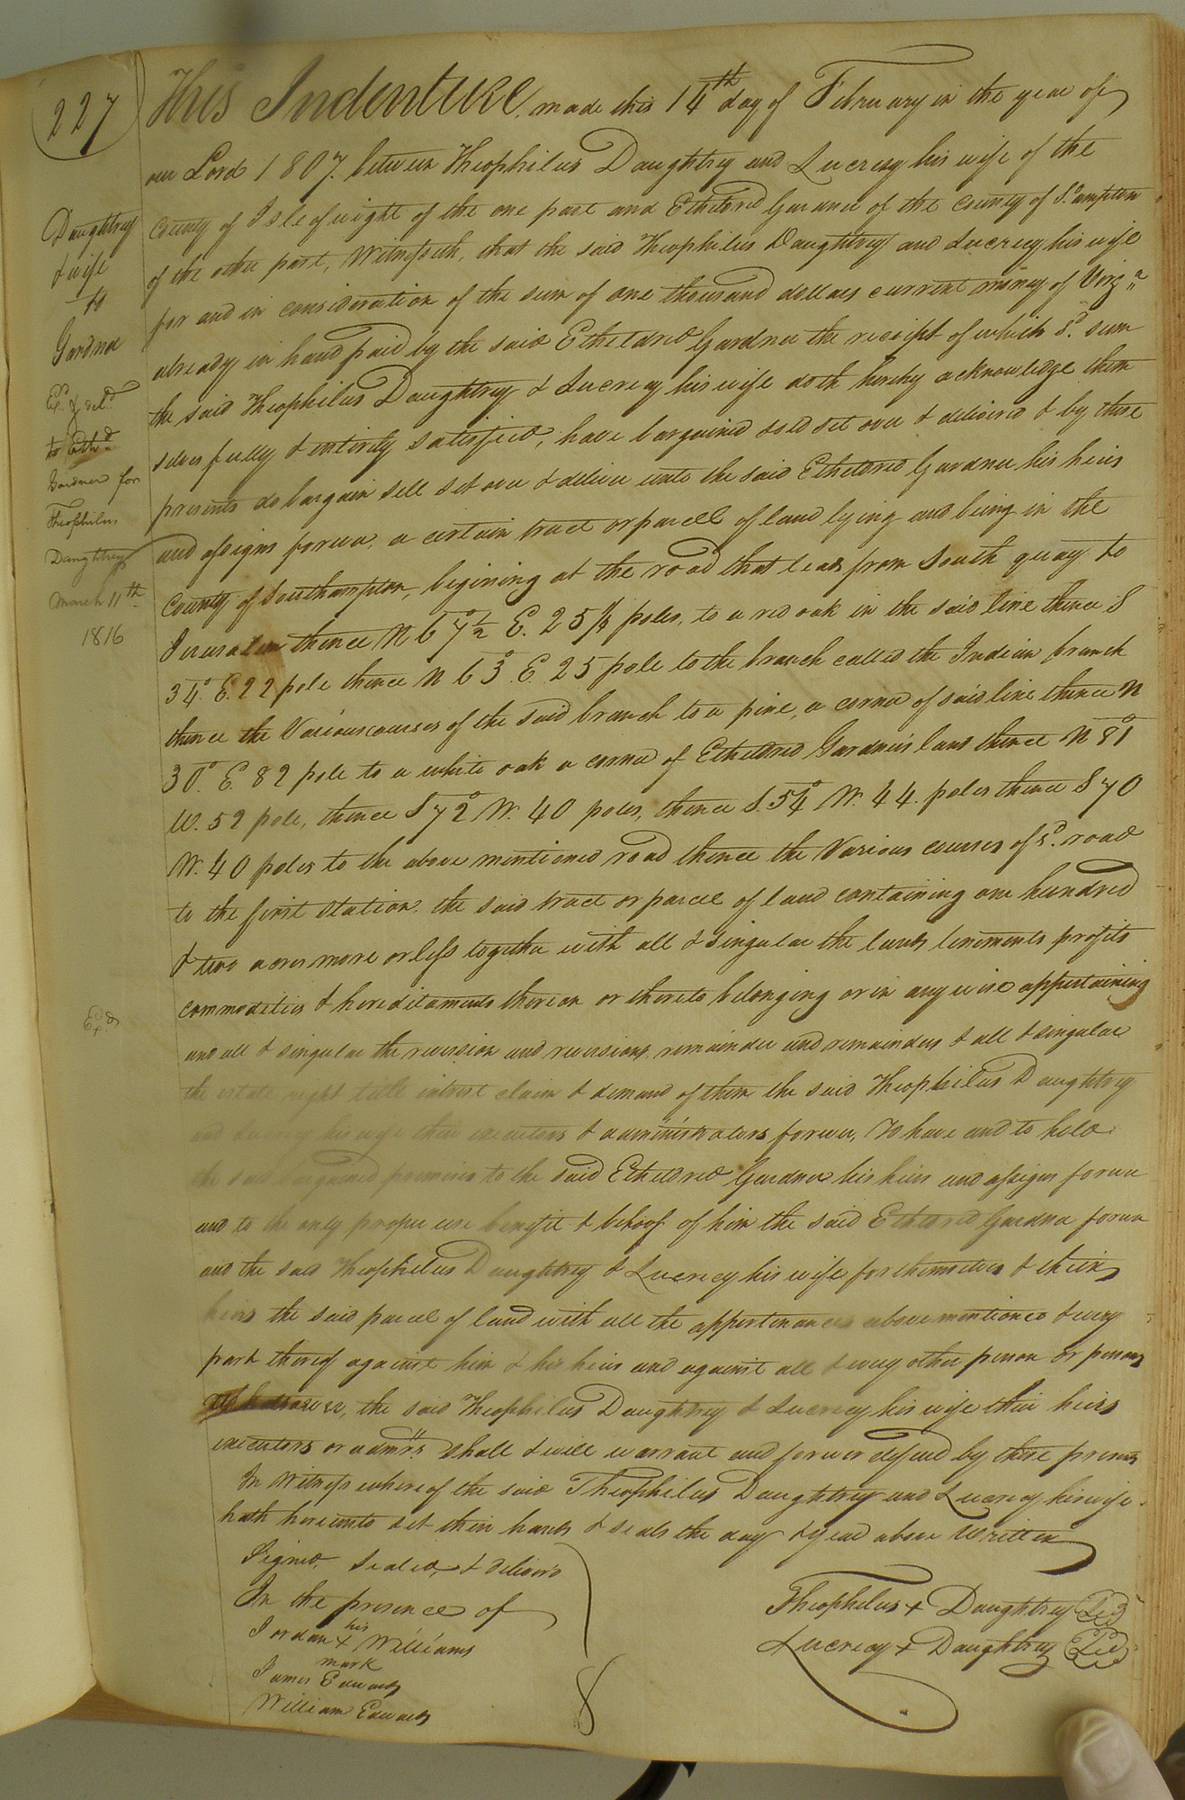 227
Daughtrey
& wife
to
Gardner
Ex.d & del.d
to Ethd
Gardner for
Theophilus
Daughtrey
March 11th
1816
Exd
This Indenture made this 14th day of February in the year of
our Lord 1807. between Theophilus Daughtrey and Lucresy his wife of the
County of Isle of wight of the one part and Etheldred Gardner of the County of S.ampton
of the other part, Witnesseth, that the said Theophilus Daughtrey and Lucrecy his wife
for and in consideration of the sum of one thousand dollars current money of Virg.a
already in hand paid by the said Etheldred Gardner the receipt of which s.d sum
the said Theophilus Daughtrey & Lucrecy his wife doth hereby acknowledge them
selves fully & entirely satisfied, have bargained sold set over & delivered & by these
presents do bargain sell set over & deliver unto the said Etheldred Gardner his heirs
and assigns forever, a certain tract or parcell of land lying and being in the
County of Southampton, begining at the road that leads from South quay to
Jerusalem thence N 67½° E. 25 poles, to a red oak in the said line thence S
34° E. 22 pole thence N 63° E. 25 pole to the branch called the Indian branch
thence the Various courses of the said branch to a pine, a corner of said line thence N
30° E. 82 pole to a white oak a corner of Etheldred Gardner's land thence N 81°
W. 52 pole, thence S 72° W. 40 poles, thence S. 54° W. 44. poles thence S 70
W. 40 poles to the above mentioned road thence the Various courses of s.d road
to the first station. the said tract or parcel of land containing one hundred
& two acres more or less together with all & singular the lands tenements profits
commodities & hereditaments thereon or thereto belonging or in any wise appertaining
and all & singular the revision and revisions, remainder and remainders & all & singular
the estate right title intrest claim & demand of them the said Theophilus Daughtrey
and Lucrecy his wife their executors & administrators forever, To have and to hold
the said bargained premises to the said Etheldred Gardner his heirs and assigns forever
and to the only proper use benefit & behoof of him the said Etheldred Gardner forever
and the said Theophilus Daughtrey & Lucrecy his wife for themselves & their
heirs the said parcel of land with all the appertinances above mentioned & every
part thereof against him & his heirs and against all & every other person or persons
whatsoever, the said Theophilus Daughtrey & Lucrecy his wife their heirs
executors or adm.rs shall & will warrant and forever defend by these presents
In Witness whereof the said Theophilus Daughtrey and Lucrecy his wife
hath hereunto set their hands & seals the day & year above Written
Signed, Sealed, & deliver'd
In the presence of
Jordan his + mark Williams
James Edwards
William Edwards
Theophilus + Daughtrey
Lucrecy + Daughtrey